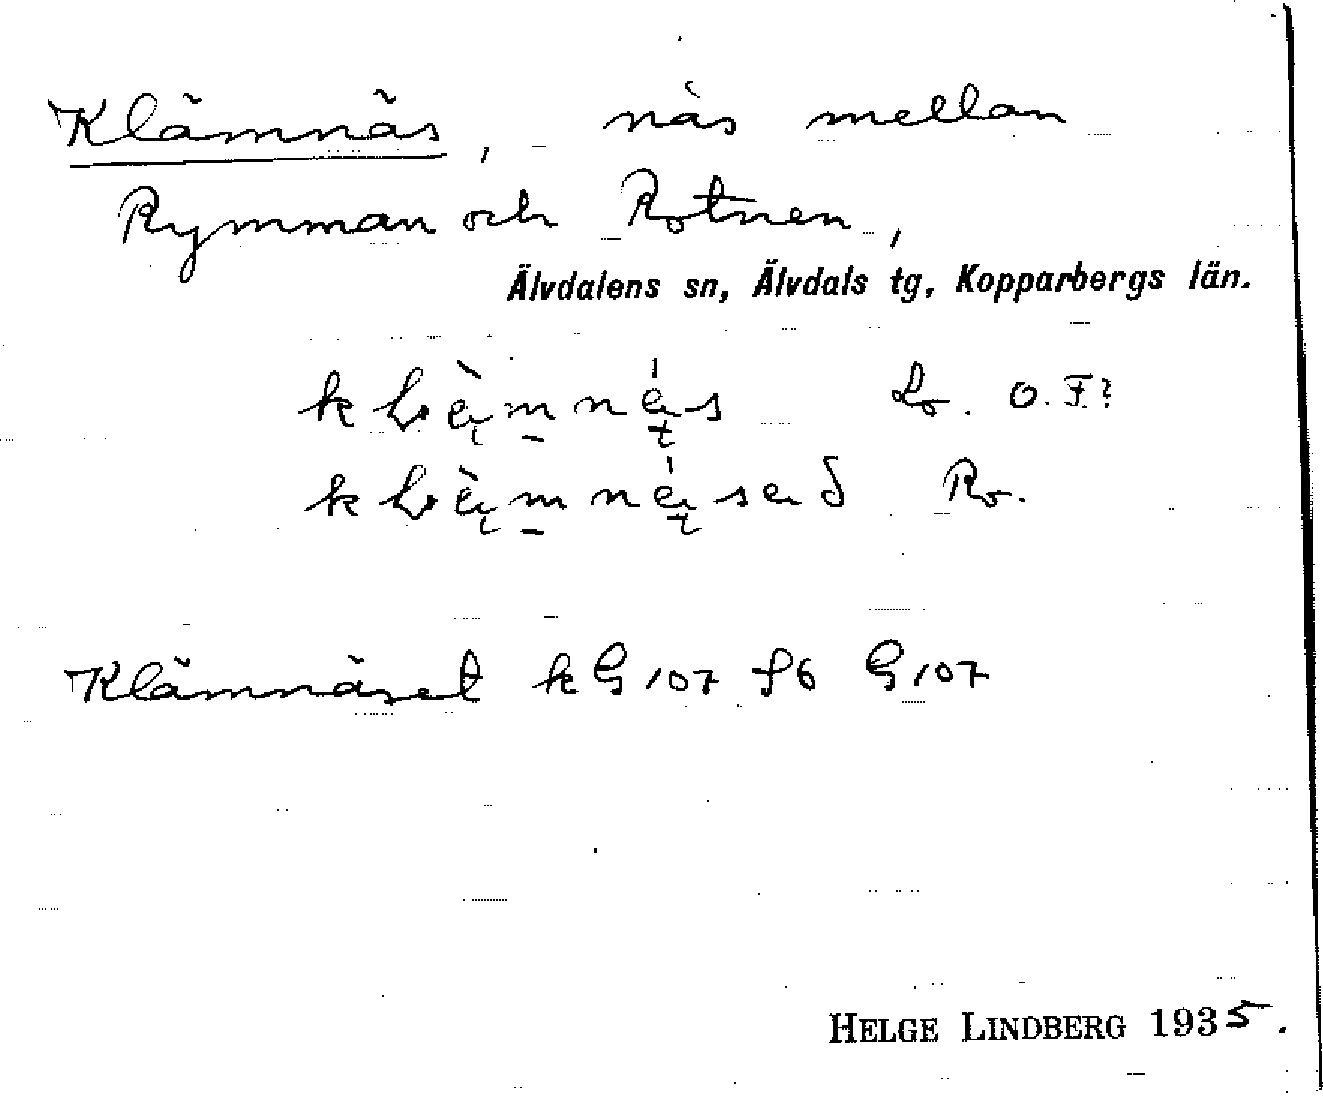 Klämnäs, näs mellan
Rymman och Rotnen,
Älvdalens sn, Älvdals tg, Kopparbergs län.
Ro.
Klämnäset kG107 f6 G107
HELGE LINDBERG 1935.